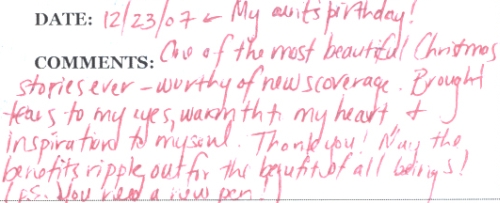 DATE: 12/23/07 ← My aunts birthday!
COMMENTS: One of the most beautiful Christmas
stories ever - worthy of newscoverage. Brought
tears to my eyes, warmth to my heart +
inspiration to my soul. Thank you! May the
benefits ripple out for the benefit of all beings!
P.S. You need a new pen!